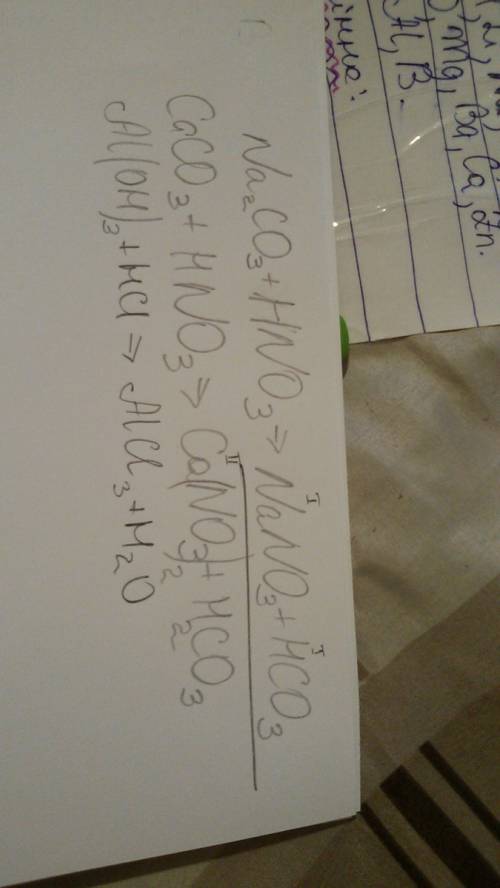 , Mg, Ba, Ca, Zn.
Al, B.
Na₂CO₃ + HNO₃ => NaᴵNO₃ + HᴵCO₃
CaCO₃ + HNO₃ => Caᴵᴵ(NO₃)₂ + H₂CO₃
Al(OH)₃ + HCl => AlCl₃ + H₂O